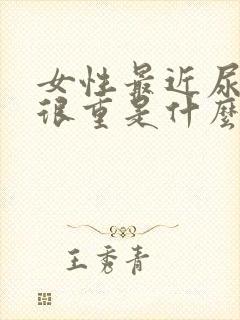 女性最近尿
很重是什麼
王秀青